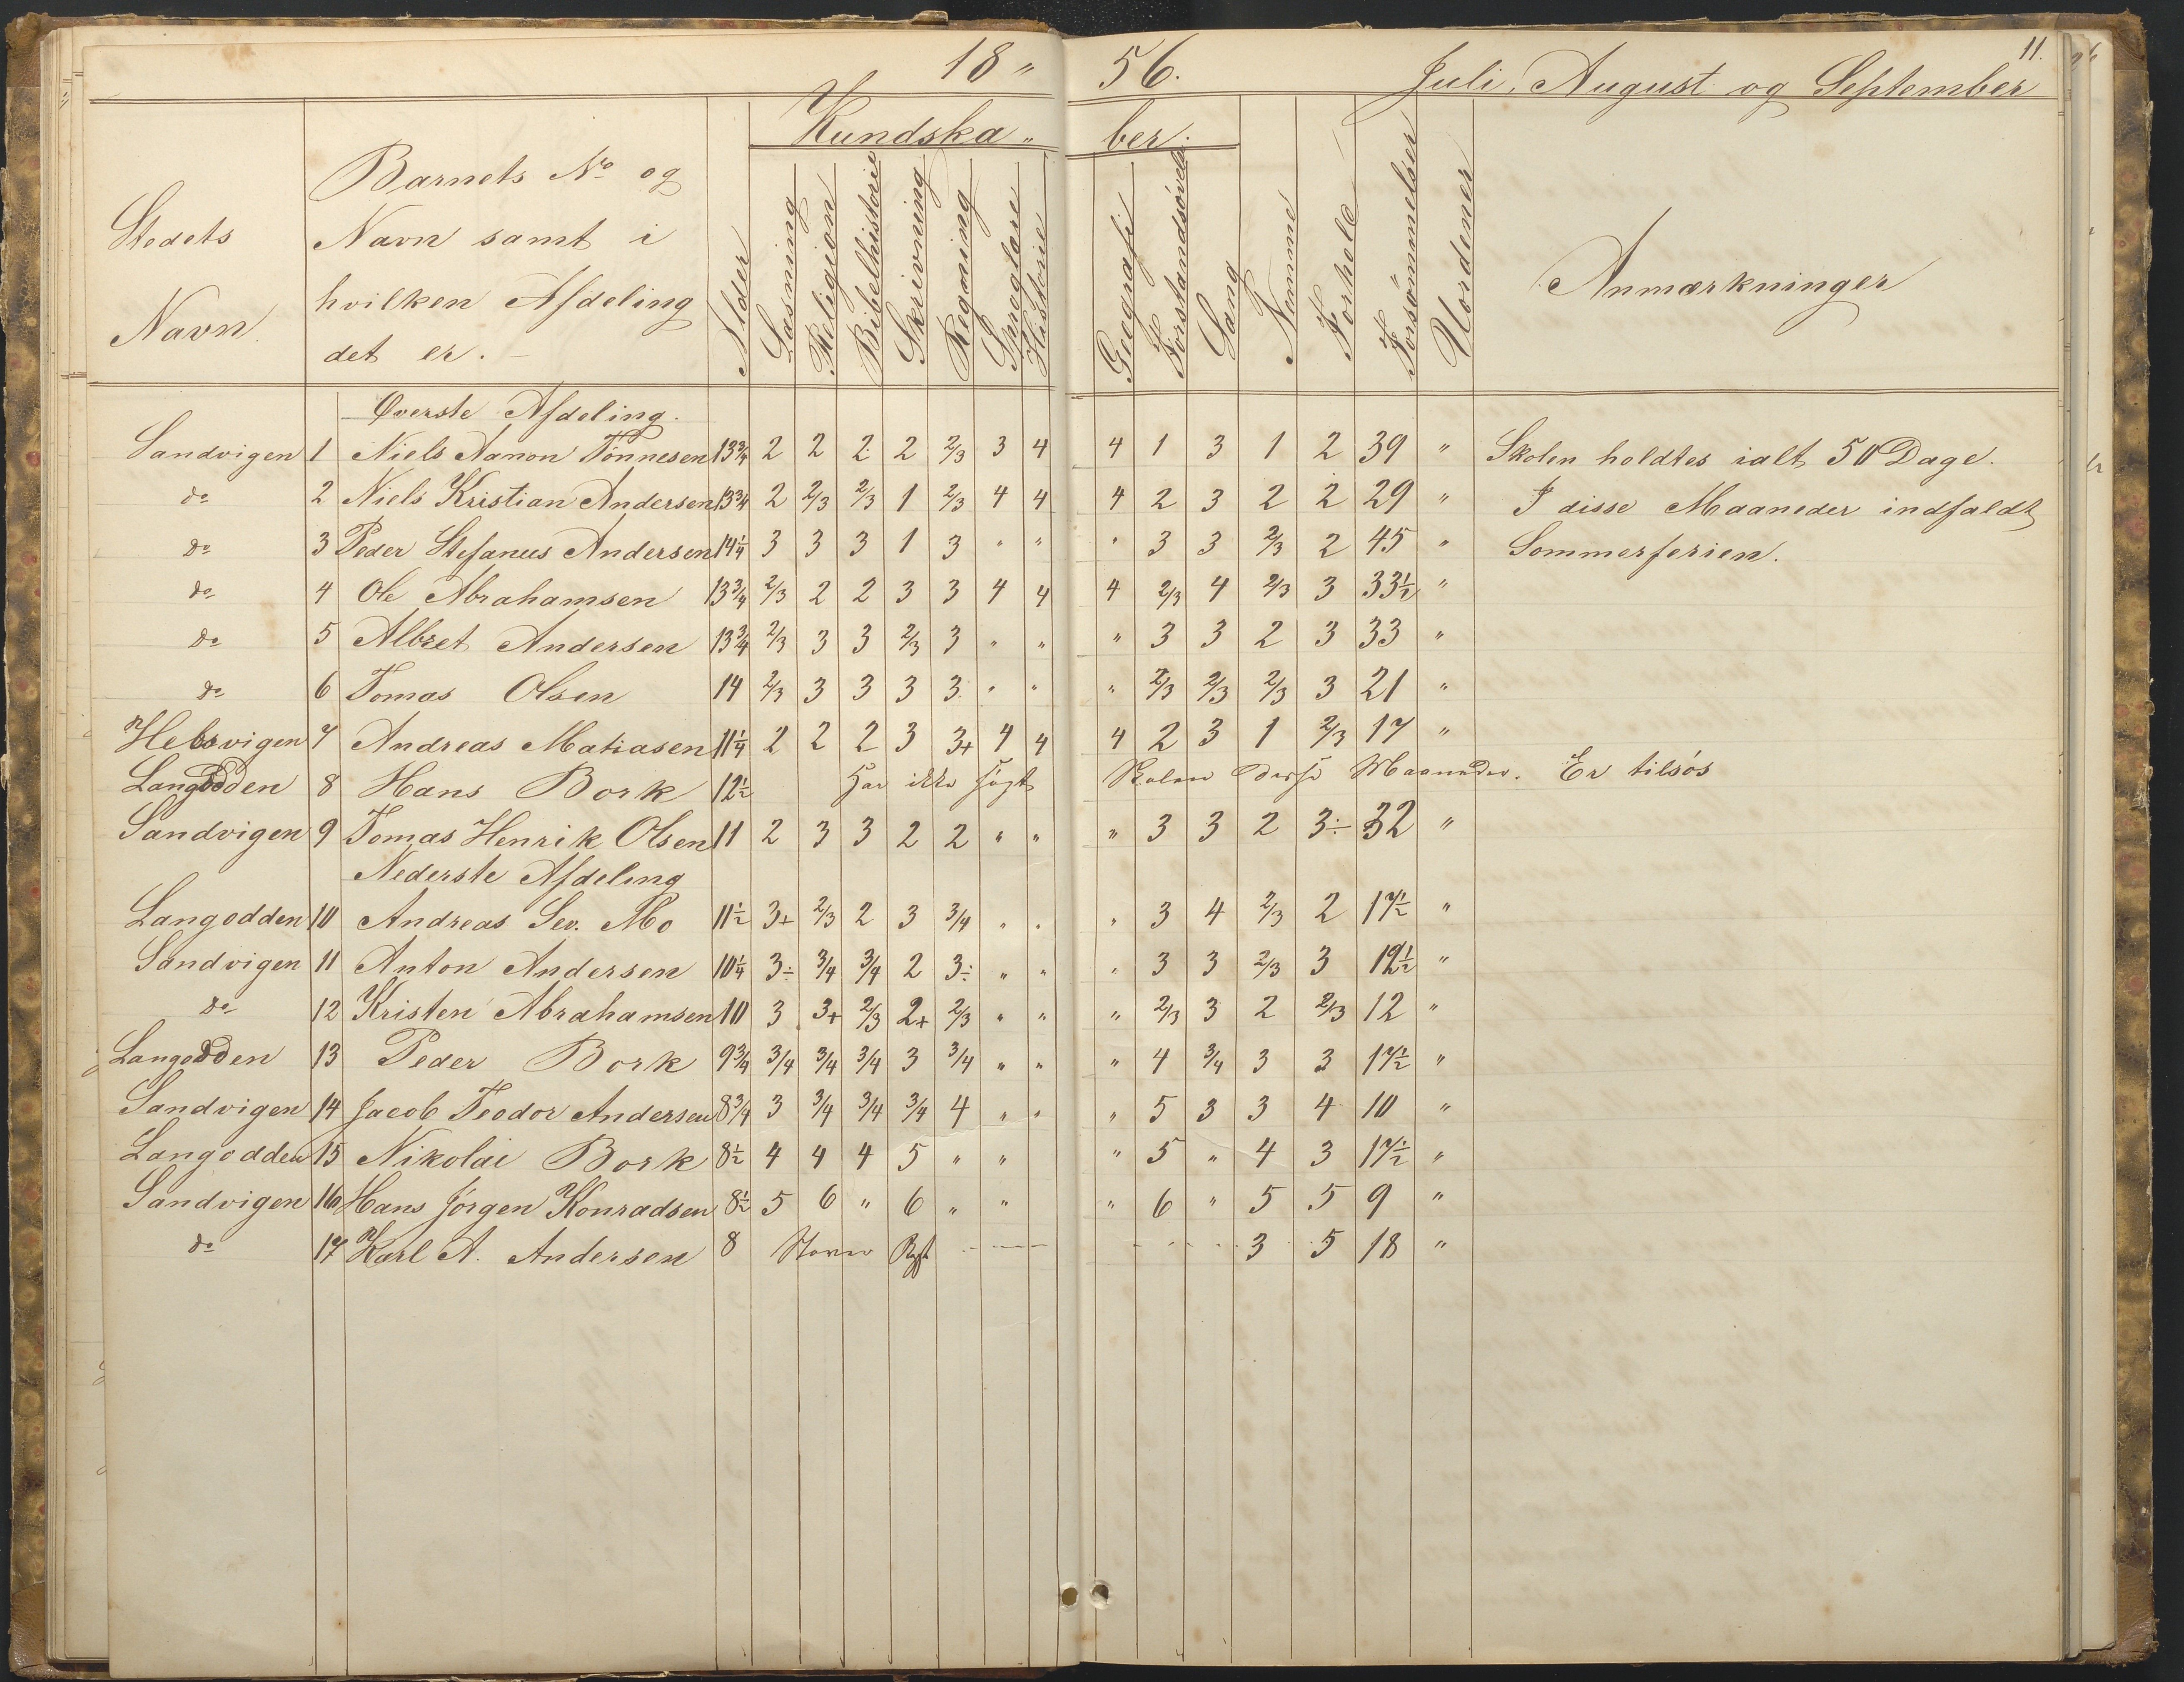 18 " 56. Juli, August og September 11.
Kundska " ber.
Stedets Navn.
Barnets No og
Navn samt i
hvilken Afdeling
det er. –
Alder
Læsning
Religion
Bibelhistorie
Skrivning
Regning
Sproglære
Historie
Geografi
Forstandsövelse
Sang
Nemme
Forhold
Forsömmelser
Uordener
Anmærkninger
Øverste Afdeling.
Sandvigen 1 Niels Aanon Tönnesen 13¾ 2 2 2 2 2/3 3 4 4 1 3 1 2 39 " Skolen holdtes ialt 50 Dage.
do 2 Niels Kristian Andersen 13¾ 2 2/3 2/3 1 2/3 4 4 4 2 3 2 2 29 " I disse Maaneder indfaldt
do 3 Peder Stefanus Andersen 14¼ 3 3 3 1 3 " " " 3 3 2/3 2 45 " Sommerferien.
do 4 Ole Abrahamsen 13¾ 2/3 2 2 3 3 4 4 4 2/3 4 2/3 3 33½ "
do 5 Albret Andersen 13¾ 2/3 3 3 2/3 3 " " " 3 3 2 3 33 "
do 6 Tomas Olsen 14 2/3 3 3 3 3 " " " 2/3 2/3 2/3 3 21 "
7 Andreas Matiasen 11¼ 2 2 2 3 3+ 4 4 4 2 3 1 2/3 17 "
Langodden 8 Hans Bork 12½ Har ikke søgt Skolen disse Maaneder. Er tilsøs
Sandvigen 9 Tomas Henrik Olsen 11 2 3 3 2 2 " " " 3 3 2 3÷ 32 "
Nederste Afdeling
Langodden 10 Andreas Sev. Mo 11½ 3+ 2/3 2 3 3/4 " " " 3 4 2/3 2 17½ "
Sandvigen 11 Anton Andersen 10¼ 3÷ 3/4 3/4 2 3÷ " " " 3 3 2/3 3 12½ "
do 12 Kristen Abrahamsen 10 3 3+ 2/3 2+ 2/3 " " " 2/3 3 2 2/3 12 "
Langodden 13 Peder Bork 9¾ 3/4 3/4 3/4 3 3/4 " " " 4 3/4 3 3 17½ "
Sandvigen 14 Jacob Teodor Andersen 8¾ 3 3/4 3/4 3/4 4 " " " 5 3 3 4 10 "
Langodden 15 Nikolai Bork 8½ 4 4 4 5 " " " 5 " 4 3 17½ "
Sandvigen 16 Hans Jörgen Konradsen 8½ 5 6 " 6 " " " 6 " 5 5 9 "
do 17 Karl A. Andersen 8 3 5 18 "